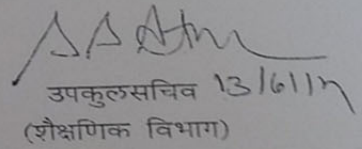 उपकुलसचिव 13/6/17
(शैक्षणिक विभाग)